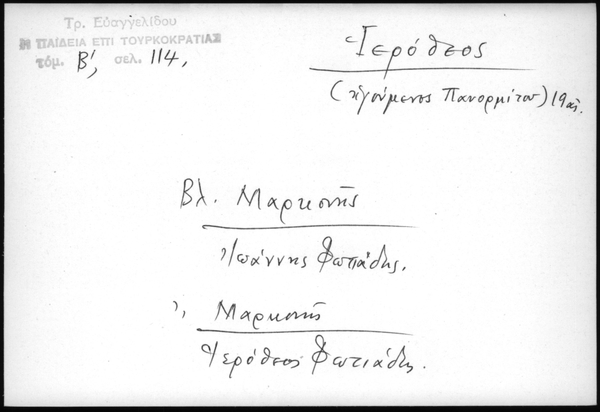 Τρ. Εὐαγγελίδου
Η ΠΑΙΔΕΙΑ ΕΠΙ ΤΟΥΡΚΟΚΡΑΤΙΑΣ
τόμ. Β', σελ. 114,
Ἱερόθεος
(ἡγούμενος Πανορμίτου) 19 αἰ.
Βλ. Μαρκονῆς
Ἰωάννης Φωτιάδης.
〃 Μαρκονῆς
Ἱερόθεος Φωτιάδης.